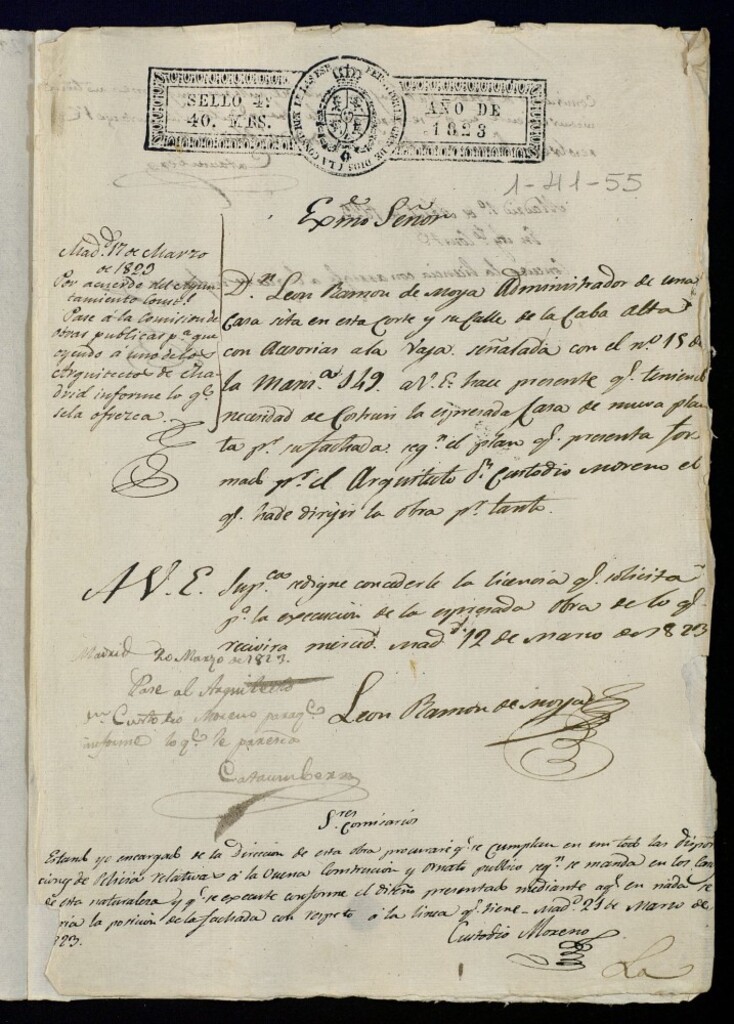 SELLO 4º
40. MRS.
AÑO DE
1823
1-41-55
Exmo Señor
Madd. 17 de Marzo
de 1823
Por acuerdo del Ayun
tamiento Const.l
Pase á la Comision de
obras publicas pa que
oyendo á uno de los
Arquitectos de Ma
drid informe lo qe
sele ofrezca.
Dn Leon Ramon de Moya Administrador de una
Casa sita en esta Corte y su Calle de la Caba alta
con Acesorias ala Vaja señalada con el nº 15 de
la Manza 149. a V.E. hace presente qe teniendo
necesidad de Costruir la espresada Casa de nueva plan
ta pr su fachada segn el plan qe presenta for
mado pr el Arquitecto Dn Custodio Moreno el
qe hade dirijir la obra pr tanto.
A V.E. Supca sedigne concederle la licencia qe solicita
pa la execucion de la espresada obra de lo qe
recivira merced. Madd 12 de Marzo de 1823
Leon Ramon de Moya
Madrid 20 Marzo de 1823.
Pase al Arquitecto
Dn Custodio Moreno paraqe
informe lo qe le parezca
Sres Comisarios
Estando yo encargado de la Direccion de esta obra procuraré qe se cumplan en un todo las dispo
ciones de Policia relativas á la buena Construccion y Ornato publico segn se manda en los
de esta naturaleza y qe se execute conforme el diseño presentado mediante aqe en nada se
ria la posicion de la fachada con respeto á la linea qe tiene - Madd 21 de Marzo de
823.
Custodio Moreno
La